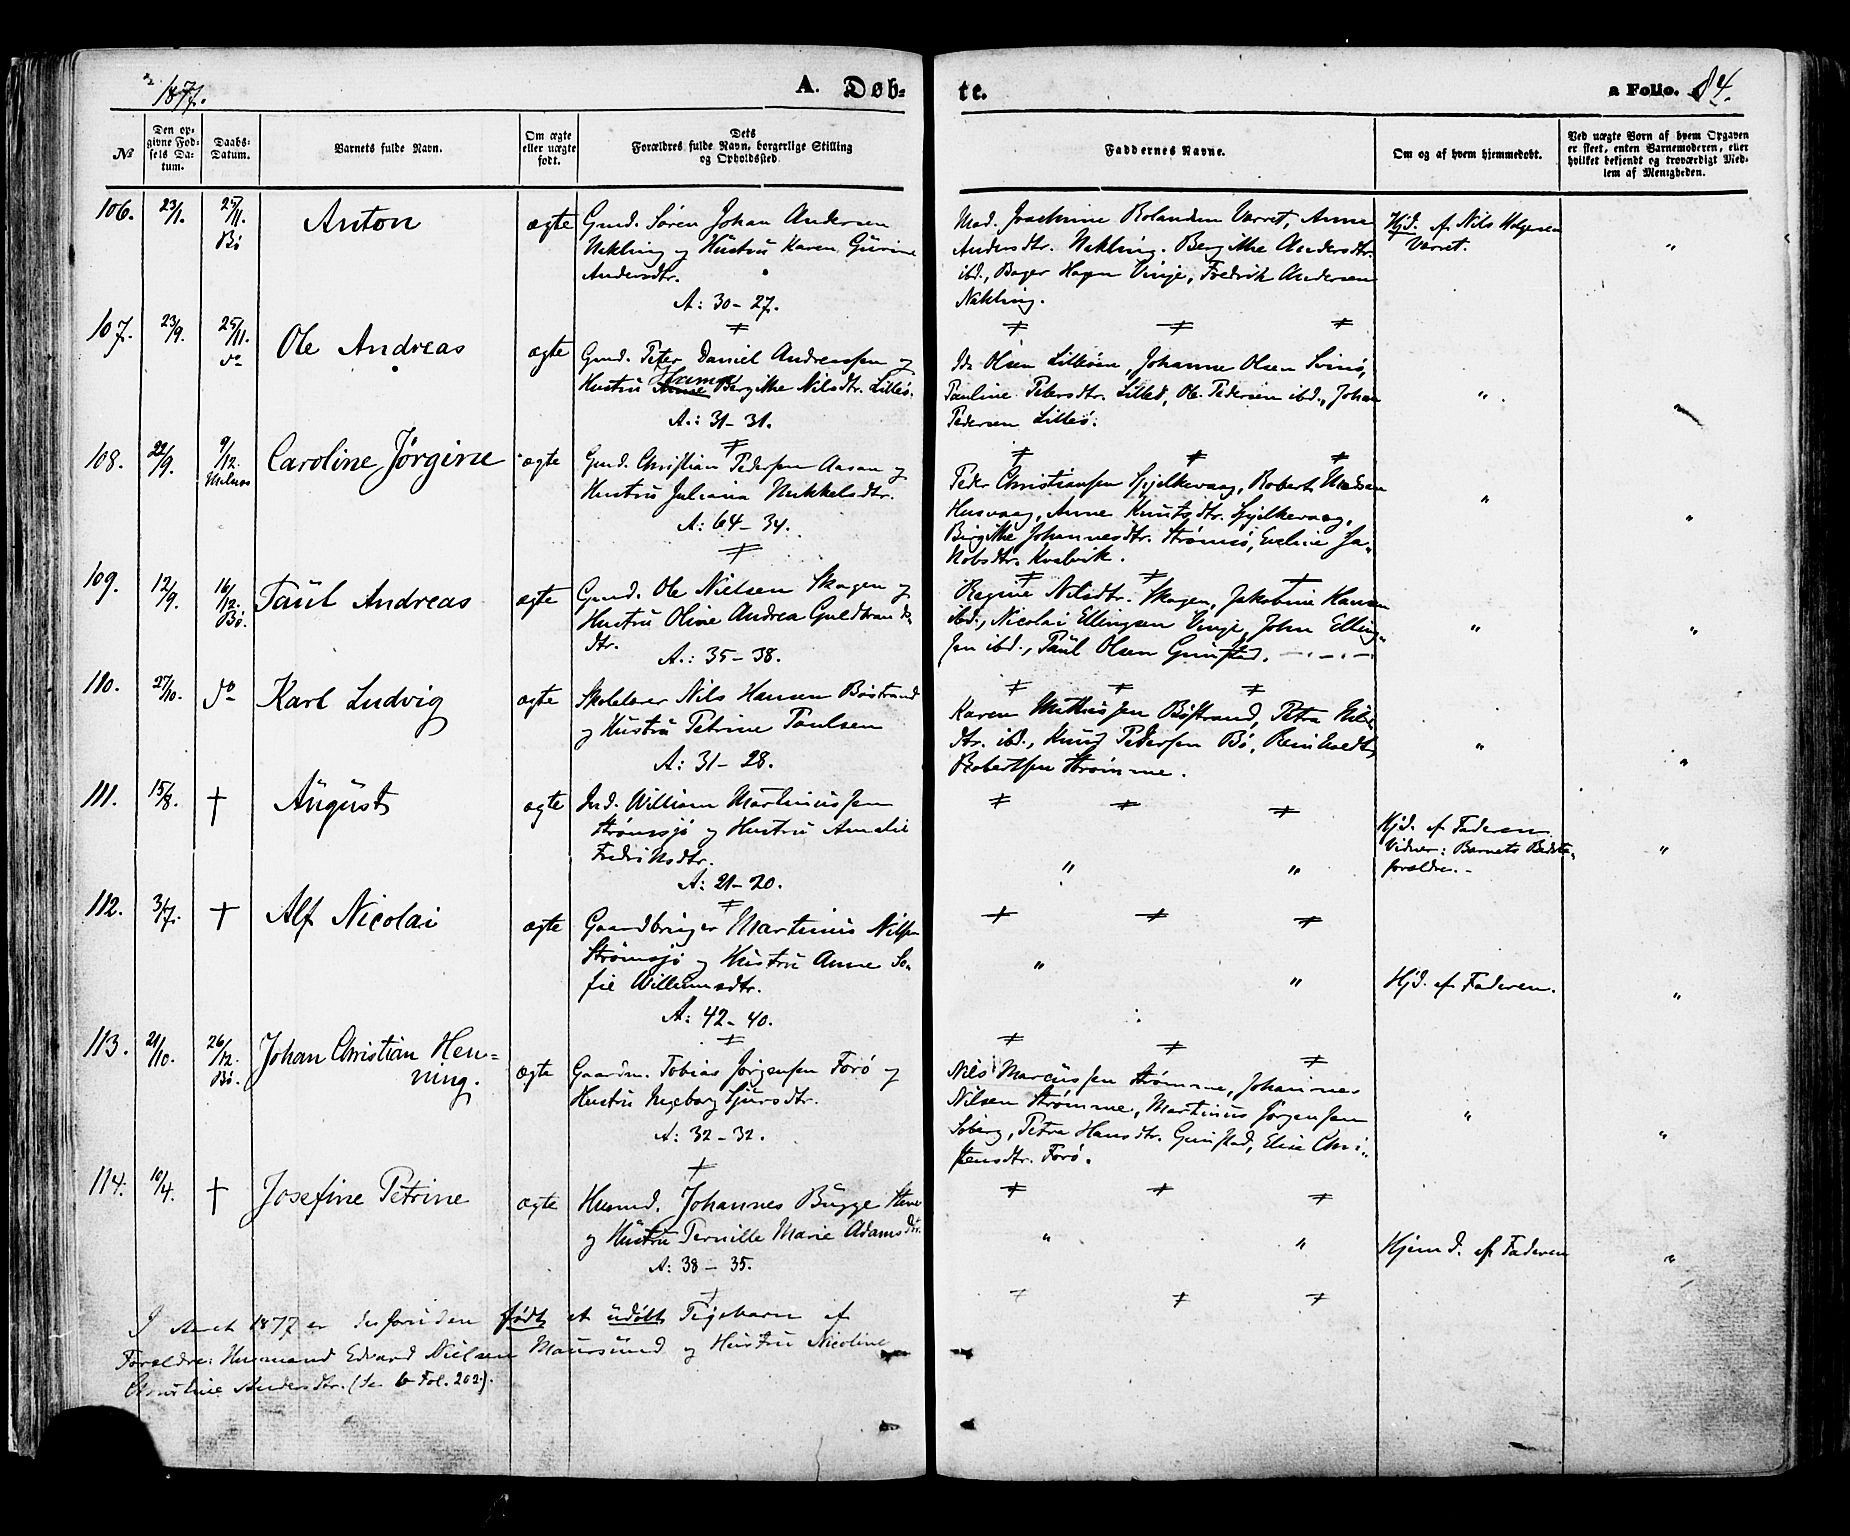 1877.
A. Døb-
te.
a Folio. 84.
№
Den op-
givne Fød-
sels Da-
tum.
Daabs-
Datum.
Barnets fulde Navn.
Om ægte
eller uægte
født.
Dets
Forældres fulde Navn, borgerlige Stilling
og Opholdssted.
Faddernes Navne.
Om og af hvem hjemmedøbt.
Ved uægte Børn af hvem Opgaven
er skeet, enten Barnemoderen, eller
hvilket bekjendt og troværdigt Med-
lem af Menigheden.
106. 23/1. 25/11. Bø
Anton
ægte
Gmd. Søren Johan Andersen
Nekling og Hustru Karen Gurine
Andersdtr.
A: 30 - 27.
Mad. Joachime Rolandsen Varret, Anne
Andersdtr. Nekling. Bergithe Andersdtr.
ibd., Hagen Vinje, Fredrik Andersen
Nekling.
Hjd. af Nils Holgersen
Varret.
"
107. 23/9. 25/11. do
Ole Andreas
ægte
Gmd. Peter Daniel Andreassen og
Hustru Anne Bergithe Nilsdtr. Lilleø.
A.: 31 - 31.
Olsen Lilleøen, Johanne Olsen Svinø,
Pauline Petersdtr. Lilleø, Ole Pedersen ibd., Johan
Pedersen Lilleø.
"
108. 22/9. 9/12. Melnes
Caroline Jørgine
ægte
Gmd. Christian Pedersen Aasan og
Hustru Juliana Mikkelsdtr.
A: 64 - 34.
Peder Christiansen Gjelkevaag, Robert Madsen
Husvaag, Anne Knutsdtr. Gjelkevaag,
Birgithe Johannesdtr. Strømsø, Eveline Ja-
kobsdtr. Kvalvik.
"
"
109. 12/9. 16/12. Bø.
Paul Andreas
ægte
Gmd. Ole Nielsen Skagen og
Hustru Oline Andrea Guldbrands-
dtr.
A.: 35 - 38.
Regine Nilsdtr. Skagen, Jakobine Hansen
ibd., Nicolai Ellingsen Vinje, John Elling-
sen ibd., Paul Olsen Gimstad.
"
"
110. 27/10. do
Karl Ludvig
ægte
Skolelærer Nils Hansen Bøstrand
og Hustru Petrine Paulsen
A: 31 - 28.
Karen Mathissen Bøstrand, Petra Nils-
dtr. ibd., Knud Pedersen Bø, Reinholdt
Robertsen Strømme.
"
"
111. 15/8. †
August
ægte
Ind. William Martinussen
Strømsjø og Hustru Amalie
Fredriksdtr.
A: 21 - 20.
" "
Hjd. af Faderen.
Vidner: Barnets Bedste-
forældre.
"
112. 3/7. †
Alf Nicolai
ægte
Gaardbruger Martinus Nilsen
Strømsjø og Hustru Anne So-
fie Williamsdtr.
A: 42 - 40.
" "
Hjd. af Faderen.
"
113. 21/10. 26/12. Bø.
Johan Christian Hen-
ning.
ægte
Gaardm. Tobias Jørgensen Forø og
Hustru Ingeborg Sjursdtr.
A: 32 - 32.
Nils Marcussen Strømme, Johannes
Nilsen Strømme, Martinus Jørgensen
Søberg, Petra Hansdtr. Gimstad, Elise Chri-
stensdtr. Forø.
"
"
114. 10/4. †
Josefine Petrine
ægte
Husmd. Johannes Bugge Steine
og Hustru Pernille Marie Adamsdtr.
A: 38 - 35.
" "
Hjemd. af Faderen
"
I Aaret 1877 er desforuden født et udøbt Pigebarn af
Forældre: Husmand Edvard Nielsen Maursund og Hustru Nicoline
Christine Andersdtr. (se b Fol. 202).